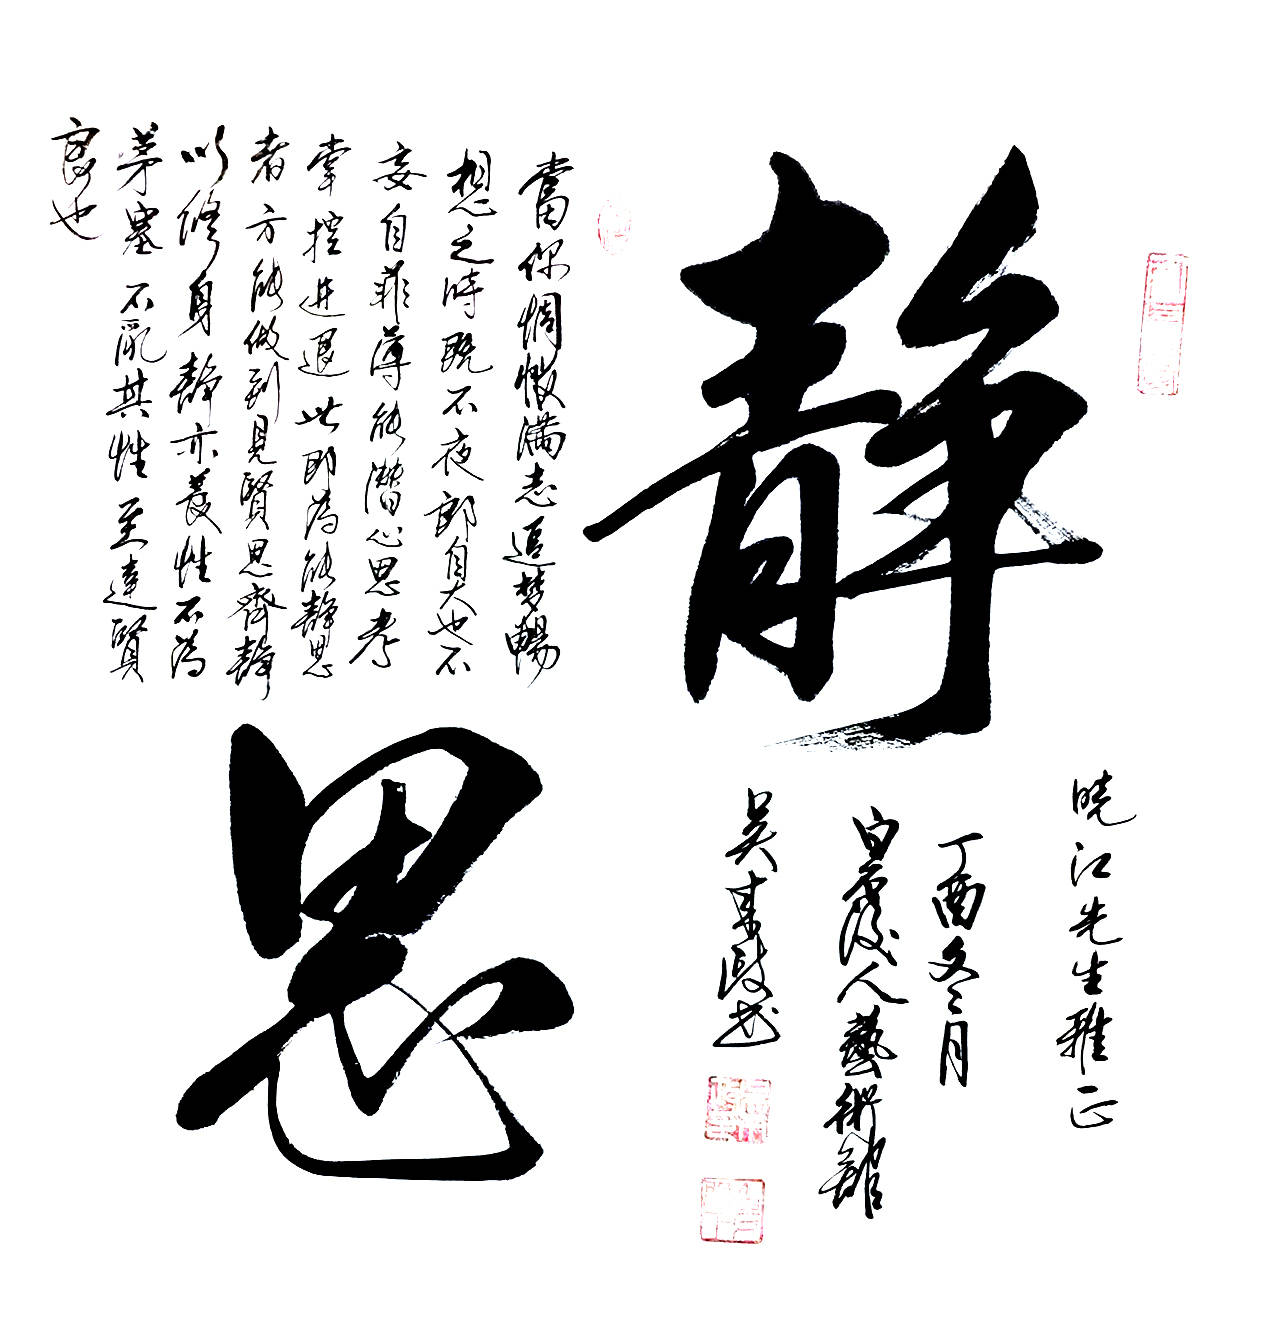 静
當你惆悵满志追梦暢
想之時既不夜郎自大也不
妄自菲薄能潛心思考
掌控进退此即為能静思
者方能做到見賢思齊静
以修身静亦養性不為
茅塞不亂其性至達賢
良也
晓江先生雅正
丁酉冬月
白人藝術館
吴東书
思